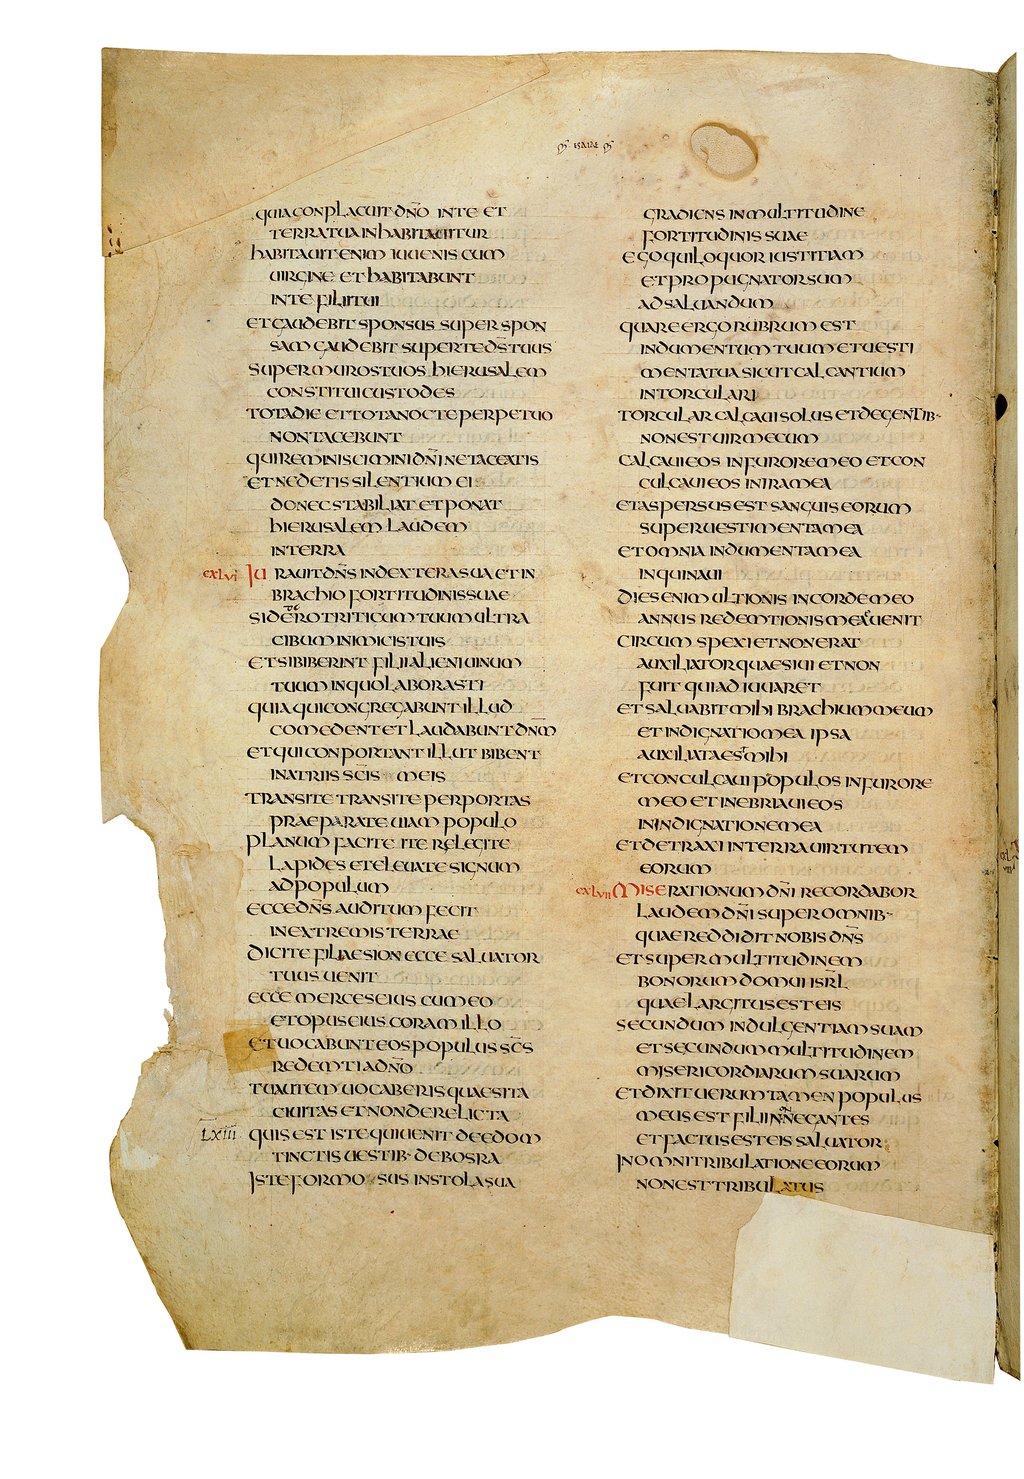 ISAIAE
QUIA CONPLACUIT DN̄O IN TE ET
TERRA TUA INHABITAUITUR
HABITAUIT ENIM IUUENIS CUM
UIRGINE ET HABITABUNT
IN TE FILII TUI
ET GAUDEBIT SPONSUS SUPER SPON
SAM GAUDEBIT SUPER TE DS̄ TUUS
SUPER MUROS TUOS HIERUSALEM
CONSTITUI CUSTODES
TOTA DIE ET TOTA NOCTE PERPETUO
NON TACEBUNT
QUI REMINISCIMINI DN̄I NE TACEATIS
ET NE DETIS SILENTIUM EI
DONEC STABILIAT ET PONAT
HIERUSALEM LAUDEM
IN TERRA
CXLVI IURAUIT DN̄S IN DEXTERA SUA ET IN
BRACHIO FORTITUDINIS SUAE
SI DEDERO TRITICUM TUUM ULTRA
CIBUM INIMICIS TUIS
ET SI BIBERINT FILII ALIENI UINUM
TUUM IN QUO LABORASTI
QUIA QUI CONGREGABUNT ILLUD
COMEDENT ET LAUDABUNT DN̄M
ET QUI CONPORTANT ILLUT BIBENT
IN ATRIIS SCĪS MEIS
TRANSITE TRANSITE PER PORTAS
PRAEPARATE UIAM POPULO
PLANUM FACITE ITER ELEGITE
LAPIDES ET ELEUATE SIGNUM
AD POPULUM
ECCE DN̄S AUDITUM FECIT
IN EXTREMIS TERRAE
DICITE FILIAE SION ECCE SALUATOR
TUUS UENIT
ECCE MERCES EIUS CUM EO
ET OPUS EIUS CORAM ILLO
ET UOCABUNT EOS POPULUS SCS̄
REDEMTI A DN̄O
TU AUTEM UOCABERIS QUAESITA
CIUITAS ET NON DERELICTA
LXIII QUIS EST ISTE QUI UENIT DE EDOM
TINCTIS UESTIB· DE BOSRA
ISTE FORMOSUS IN STOLA SUA
GRADIENS IN MULTITUDINE
FORTITUDINIS SUAE
EGO QUI LOQUOR IUSTITIAM
ET PROPUGNATOR SUM
AD SALUANDUM
QUARE ERGO RUBRUM EST
INDUMENTUM TUUM ET UESTI
MENTA TUA SICUT CALCANTIUM
IN TORCULARI
TORCULAR CALCAUI SOLUS ET DE GENTIB·
NON EST UIR MECUM
CALCAUI EOS IN FURORE MEO ET CON
CULCAUI EOS IN IRA MEA
ET ASPERSUS EST SANGUIS EORUM
SUPER UESTIMENTA MEA
ET OMNIA INDUMENTA MEA
INQUINAUI
DIES ENIM ULTIONIS IN CORDE MEO
ANNUS REDEMTIONIS MEAE UENIT
CIRCUMSPEXI ET NON ERAT
AUXILIATOR QUAESIUI ET NON
FUIT QUI ADIUUARET
ET SALUABIT MIHI BRACHIUM MEUM
ET INDIGNATIO MEA IPSA
AUXILIATA EST MIHI
ET CONCULCAUI POPULOS IN FURORE
MEO ET INEBRIAUI EOS
IN INDIGNATIONE MEA
ET DETRAXI IN TERRA UIRTUTEM
EORUM
CXLVII MISERATIONUM DN̄I RECORDABOR
LAUDEM DN̄I SUPER OMNIB·
QUAE REDDIDIT NOBIS DN̄S
ET SUPER MULTITUDINEM
BONORUM DOMUI ISRL̄
QUAE LARGITUS EST EIS
SECUNDUM INDULGENTIAM SUAM
ET SECUNDUM MULTITUDINEM
MISERICORDIARUM SUARUM
ET DIXIT UERUM TAMEN POPULUS
MEUS EST FILII NON NEGANTES
ET FACTUS EST EIS SALUATOR
IN OMNI TRIBULATIONE EORUM
NON EST TRIBULATUS